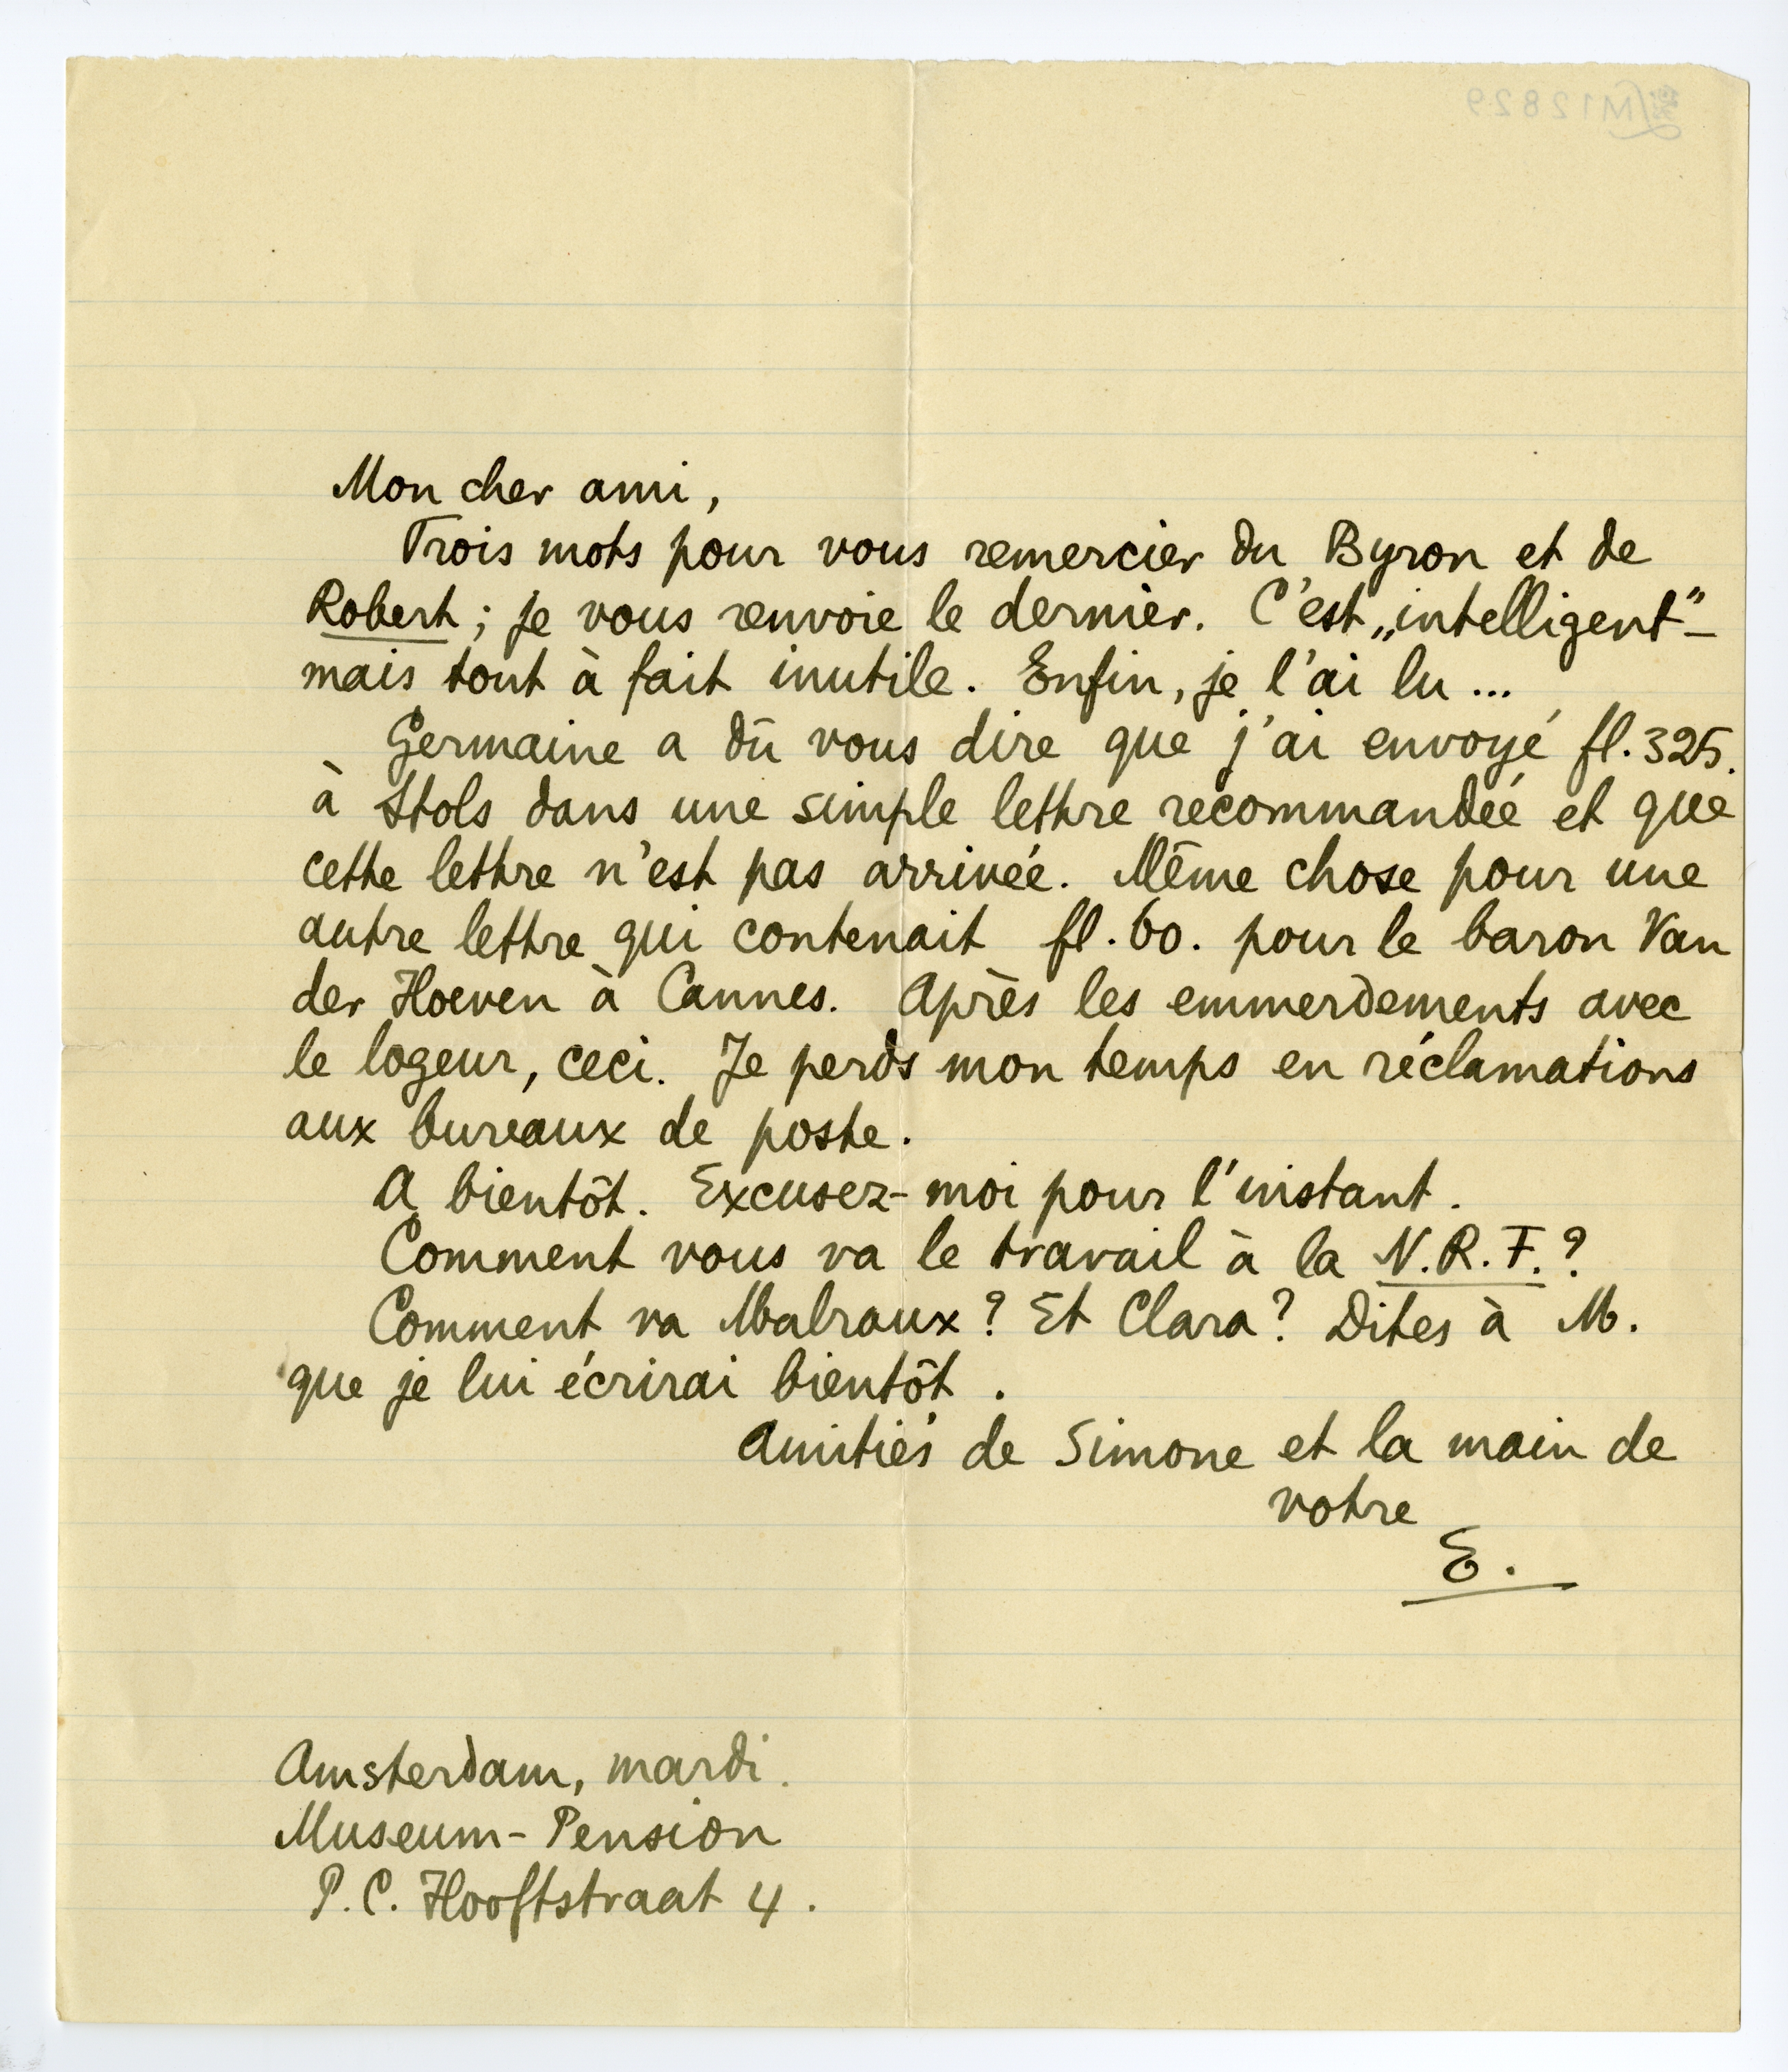 M12829
Mon cher ami,
Trois mots pour vous remercier du Byron et de
Robert; je vous renvoie le dernier. C'est „intelligent” –
mais tout à fait inutile. Enfin, je l'ai lu ...
Germaine a dû vous dire que j'ai envoyé fl. 325.
à Stols dans une simple lettre recommandée et que
cette lettre n'est pas arrivée. Même chose pour une
autre lettre qui contenait fl. 60. pour le baron Van
der Hoeven à Cannes. Après les emmerdements avec
le logeur, ceci. Je perds mon temps en réclamations
aux bureaux de poste.
A bientôt. Excusez-moi pour l'instant.
Comment vous va le travail à la N.R.F.?
Comment va Malraux? Et Clara? Dites à M.
que je lui écrirai bientôt.
Amitiés de Simone et la main de
votre
E.
Amsterdam, mardi.
Museum-Pension
P.C. Hooftstraat 4.